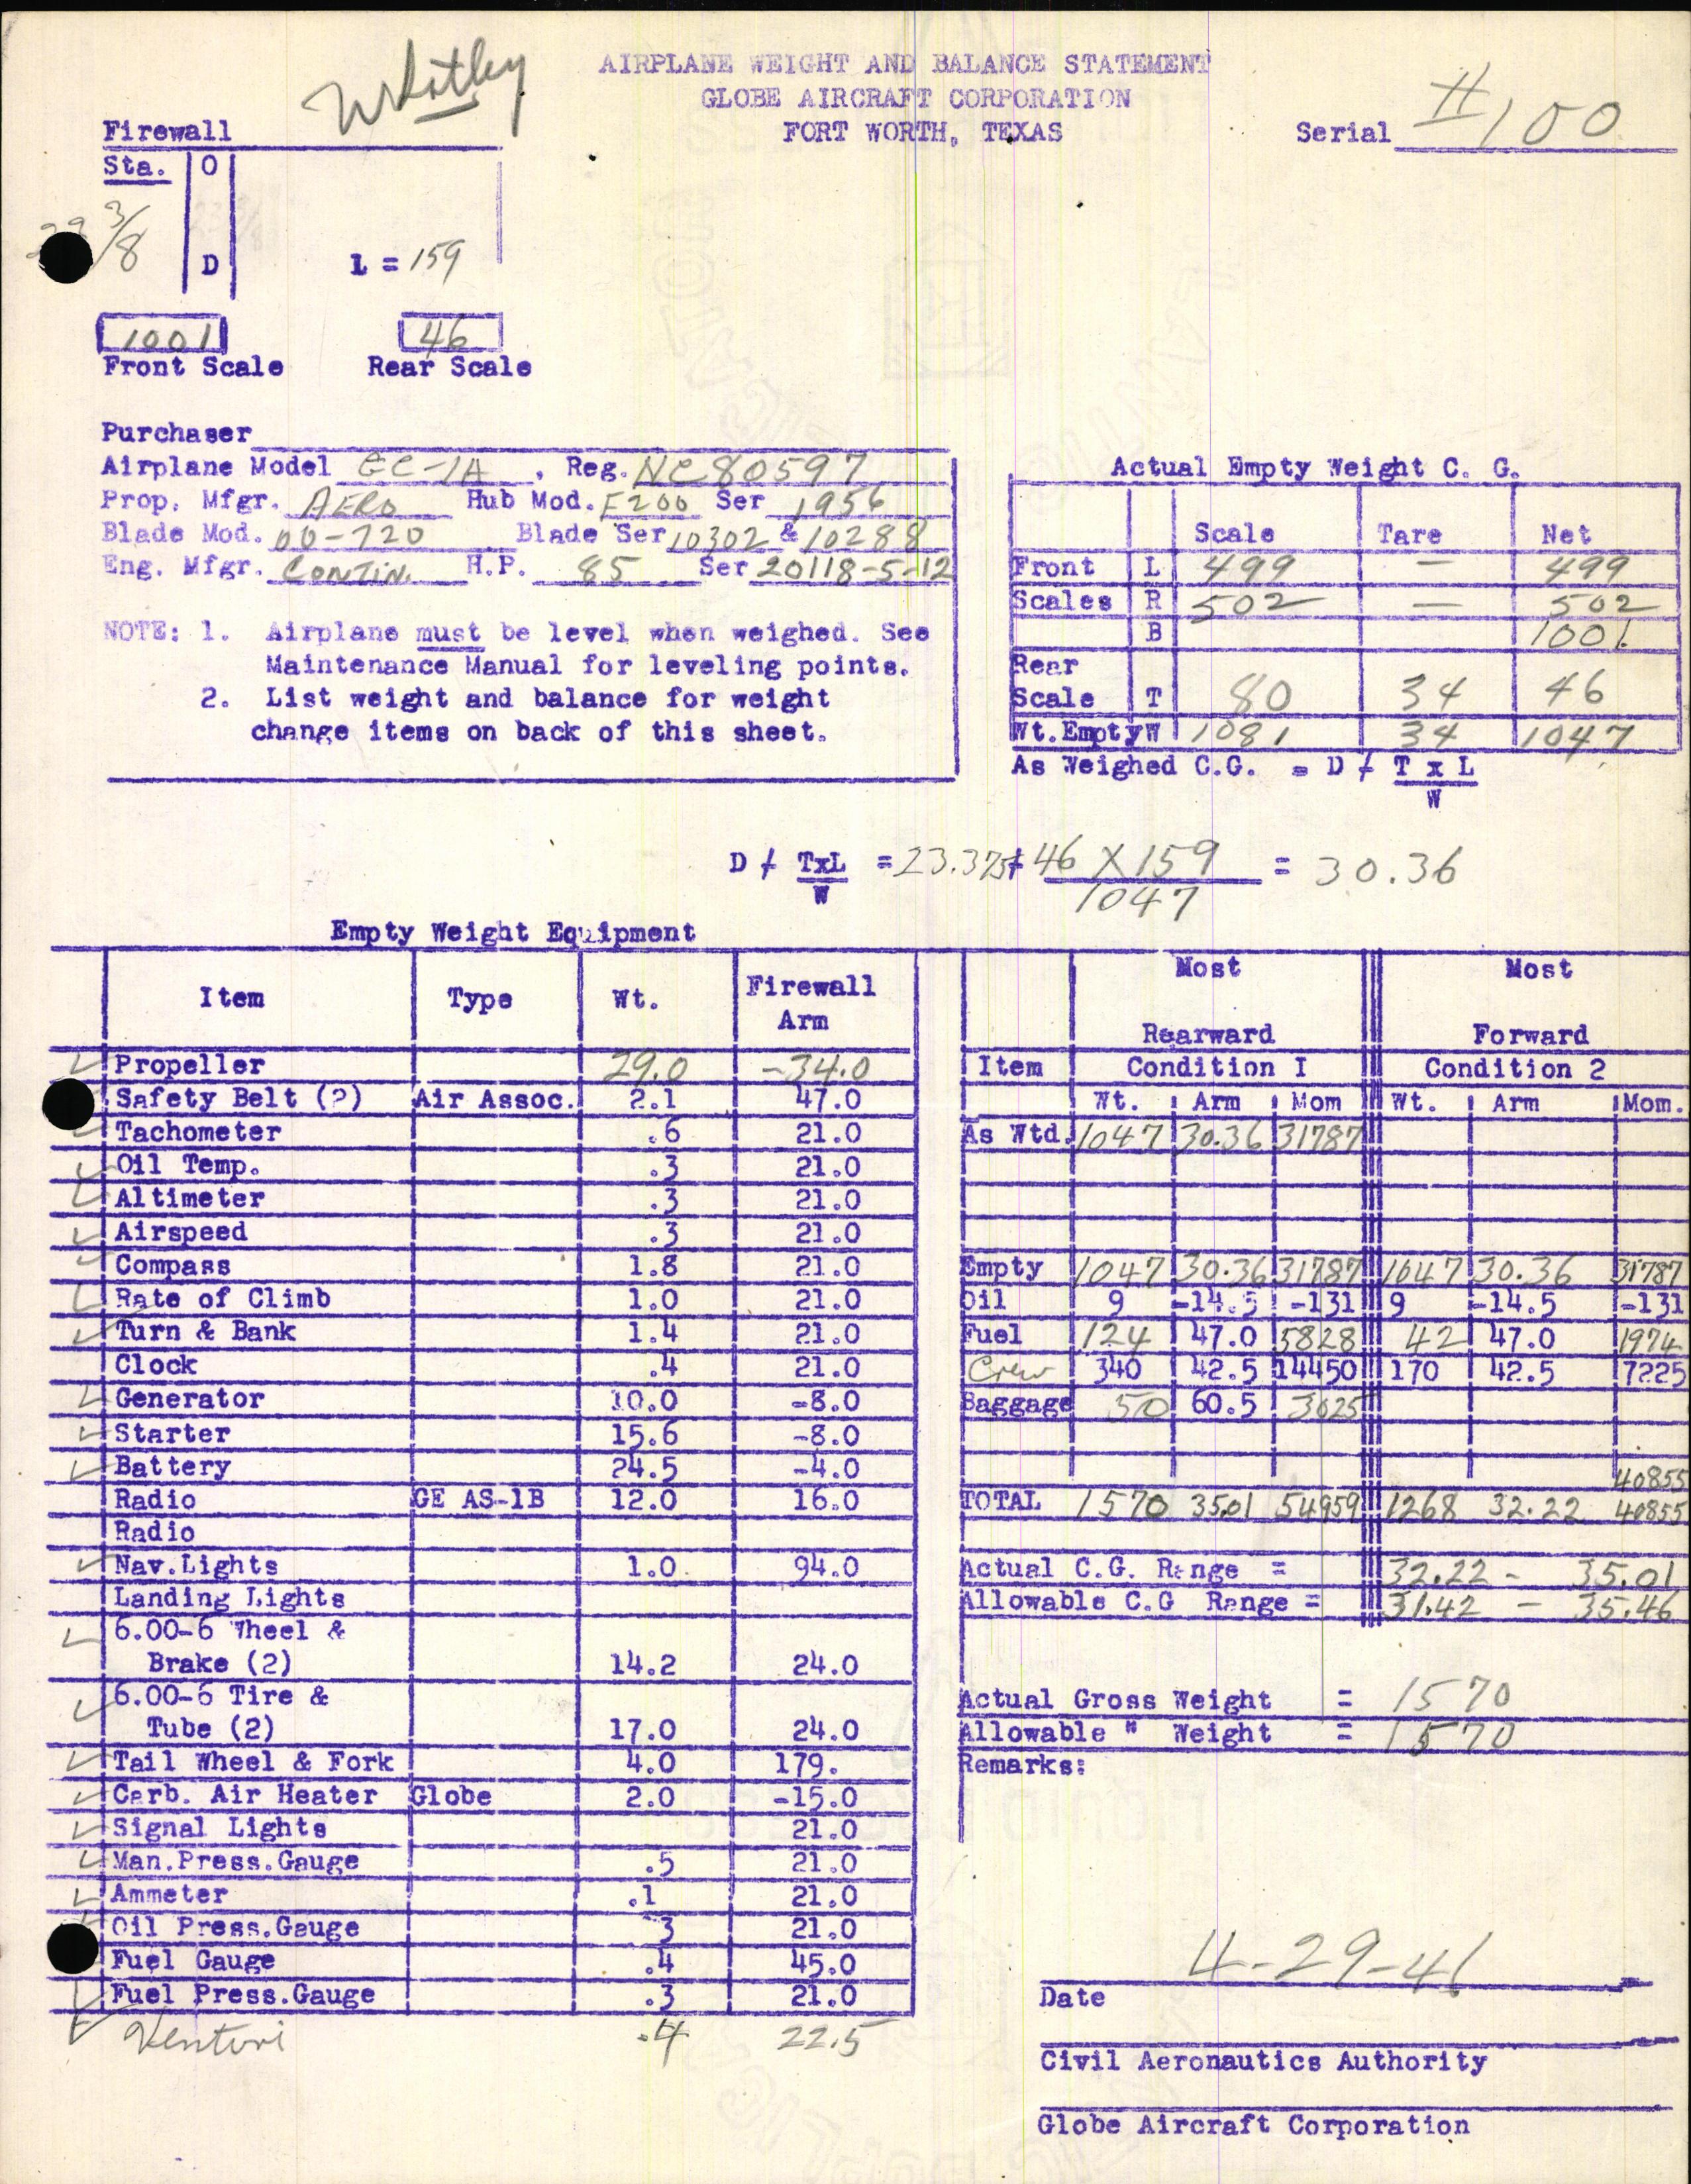 Whitley
AIRPLANE WEIGHT AND BALANCE STATEMENT
GLOBE AIRCRAFT CORPORATION
FORT WORTH, TEXAS
Serial #100
Firewall
Sta. O
3/8
D L = 159
1001 46
Front Scale Rear Scale
Purchaser
Airplane Model GC-1A, Reg. NC80597
Prop. Mfgr. AERO Hub Mod. F200 Ser 1956
Blade Mod. 00-720 Blade Ser 10302 & 10288
Eng. Mfgr. CONTIN. H.P. 85 Ser 20118-5-12
NOTE: 1. Airplane must be level when weighed. See
Maintenance Manual for leveling points.
2. List weight and balance for weight
change items on back of this sheet.
Actual Empty Weight C. G.
Scale Tare Net
Front L 499 — 499
Scales R 502 — 502
B 1001.
Rear
Scale T 80 34 46
Wt.Empty W 1081 34 1047
As Weighed C.G. = D + T x L
W
D + TxL = 23.375 + 46 X 159 = 30.36
W 1047
Empty Weight Equipment
Item Type Wt. Firewall Arm
Propeller 29.0 -34.0
Safety Belt (2) Air Assoc. 2.1 47.0
Tachometer .6 21.0
Oil Temp. .3 21.0
Altimeter .3 21.0
Airspeed .3 21.0
Compass 1.8 21.0
Rate of Climb 1.0 21.0
Turn & Bank 1.4 21.0
Clock .4 21.0
Generator 10.0 -8.0
Starter 15.6 -8.0
Battery 24.5 -4.0
Radio GE AS-1B 12.0 16.0
Radio
Nav.Lights 1.0 94.0
Landing Lights
6.00-6 Wheel &
Brake (2) 14.2 24.0
6.00-6 Tire &
Tube (2) 17.0 24.0
Tail Wheel & Fork 4.0 179.
Carb. Air Heater Globe 2.0 -15.0
Signal Lights 21.0
Man.Press.Gauge .5 21.0
Ammeter .1 21.0
Oil Press.Gauge .3 21.0
Fuel Gauge .4 45.0
Fuel Press.Gauge .3 21.0
Venturi .4 22.5
Most Most
Rearward Forward
Item Condition I Condition 2
Wt. Arm Mom Wt. Arm Mom.
As Wtd. 1047 30.36 31787
Empty 1047 30.36 31787 1047 30.36 31787
Oil 9 -14.5 -131 9 -14.5 -131
Fuel 124 47.0 5828 42 47.0 1974
Crew 340 42.5 14450 170 42.5 7225
Baggage 50 60.5 3025
40855
TOTAL 1570 35.01 54959 1268 32.22 40855
Actual C.G. Range = 32.22 - 35.01
Allowable C.G Range = 31.42 - 35.46
Actual Gross Weight = 1570
Allowable " Weight = 1570
Remarks:
4-29-46
Date
Civil Aeronautics Authority
Globe Aircraft Corporation